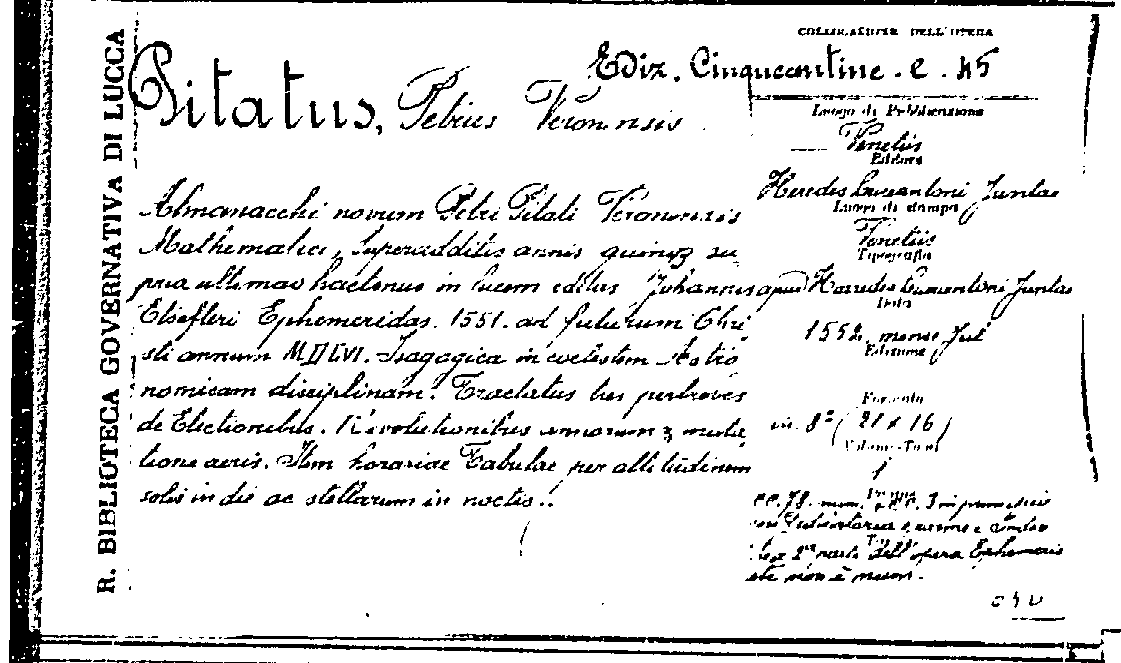 R. BIBLIOTECA GOVERNATIVA DI LUCCA
COLLOCAZIONE DELL'OPERA
Ediz. Cinquecentine. e. 45
Pitatus, Petrus Veronensis
Luogo di Pubblicazione
Venetiis
Editore
Heredes Lucaeantoni Juntae
Luogo di stampa
Venetiis
Tipografia
apud Haeredes Lucaeantoni Juntas
Data
1552 mense Jul
Edizione
Formato
in 8° (21 x 16)
Volume-Tomi
1
Almanacchi novum Petri Pitati Veronensis
Mathematici, Superadditis annis quinqz su
pra ultimas hactenus in lucem editas Johannis
Elsefleri Ephemeridas. 1551. ad futurum Chri
sti annum MDLVI. Isagogica in coelestem Astro
nomicam disciplinam. Tractatus tres perbreves
de Electionibus. Revolutionibus annorum z muta
tione aeris. Item horariae Tabulae per altitudinem
solis in die ac stellarum in noctis..
cc. 78. num.
2ª parte dell'opera Ephemeri
non è num.